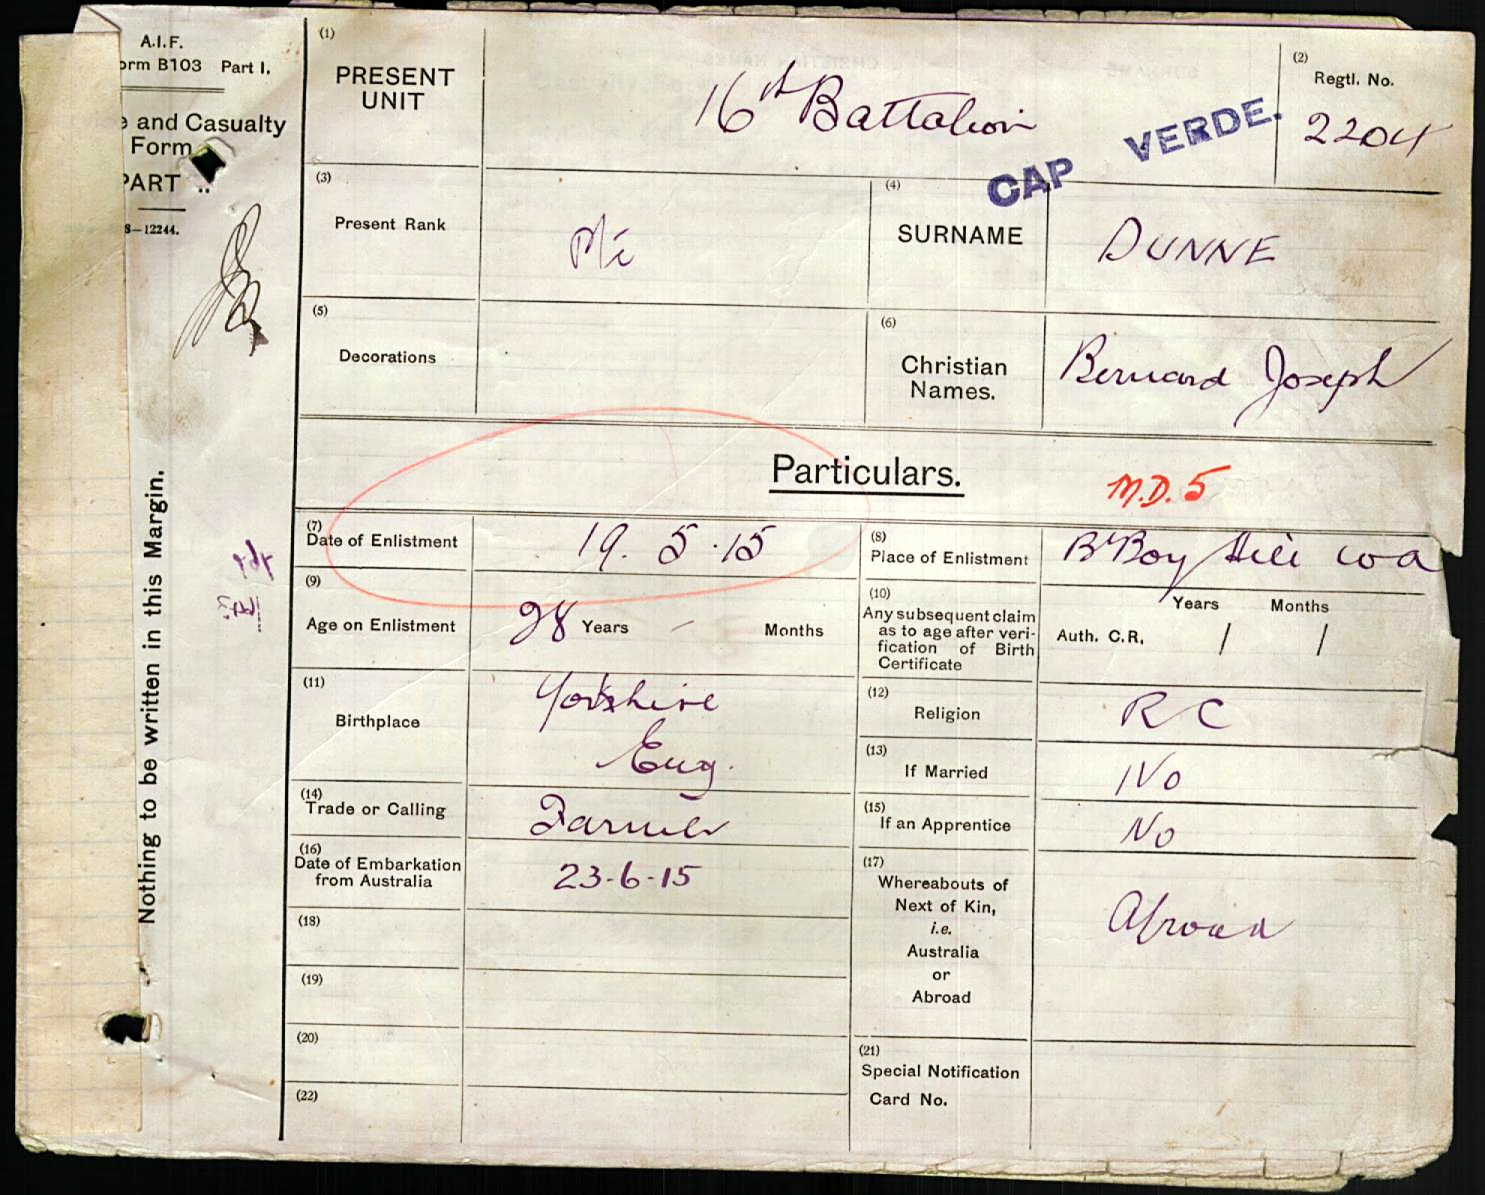 A.I.F.
orm B103 Part I.
e and Casualty
Form
PART
S—12244.
Nothing to be written in this Margin.
(1)
PRESENT
UNIT
16th Battalion
CAP VERDE.
(2)
Regtl. No.
2204
(3)
Present Rank
Pte
(4)
SURNAME
DUNNE
(5)
Decorations
(6)
Christian
Names.
Bernard Joseph
Particulars.
M.D. 5
(7)
Date of Enlistment
19. 5. 15
(8)
Place of Enlistment
Bk Boy Hill W A
(9)
Age on Enlistment
28 Years — Months
(10)
Any subsequent claim
as to age after veri-
fication of Birth
Certificate
Years Months
Auth. C.R. / /
(11)
Birthplace
Yorkshire
Eng.
(12)
Religion
R C
(13)
If Married
No
(14)
Trade or Calling
Farmer
(15)
If an Apprentice
No
(16)
Date of Embarkation
from Australia
23-6-15
(17)
Whereabouts of
Next of Kin,
i.e.
Australia
or
Abroad
Abroad
(18)
(19)
(20)
(21)
Special Notification
Card No.
(22)